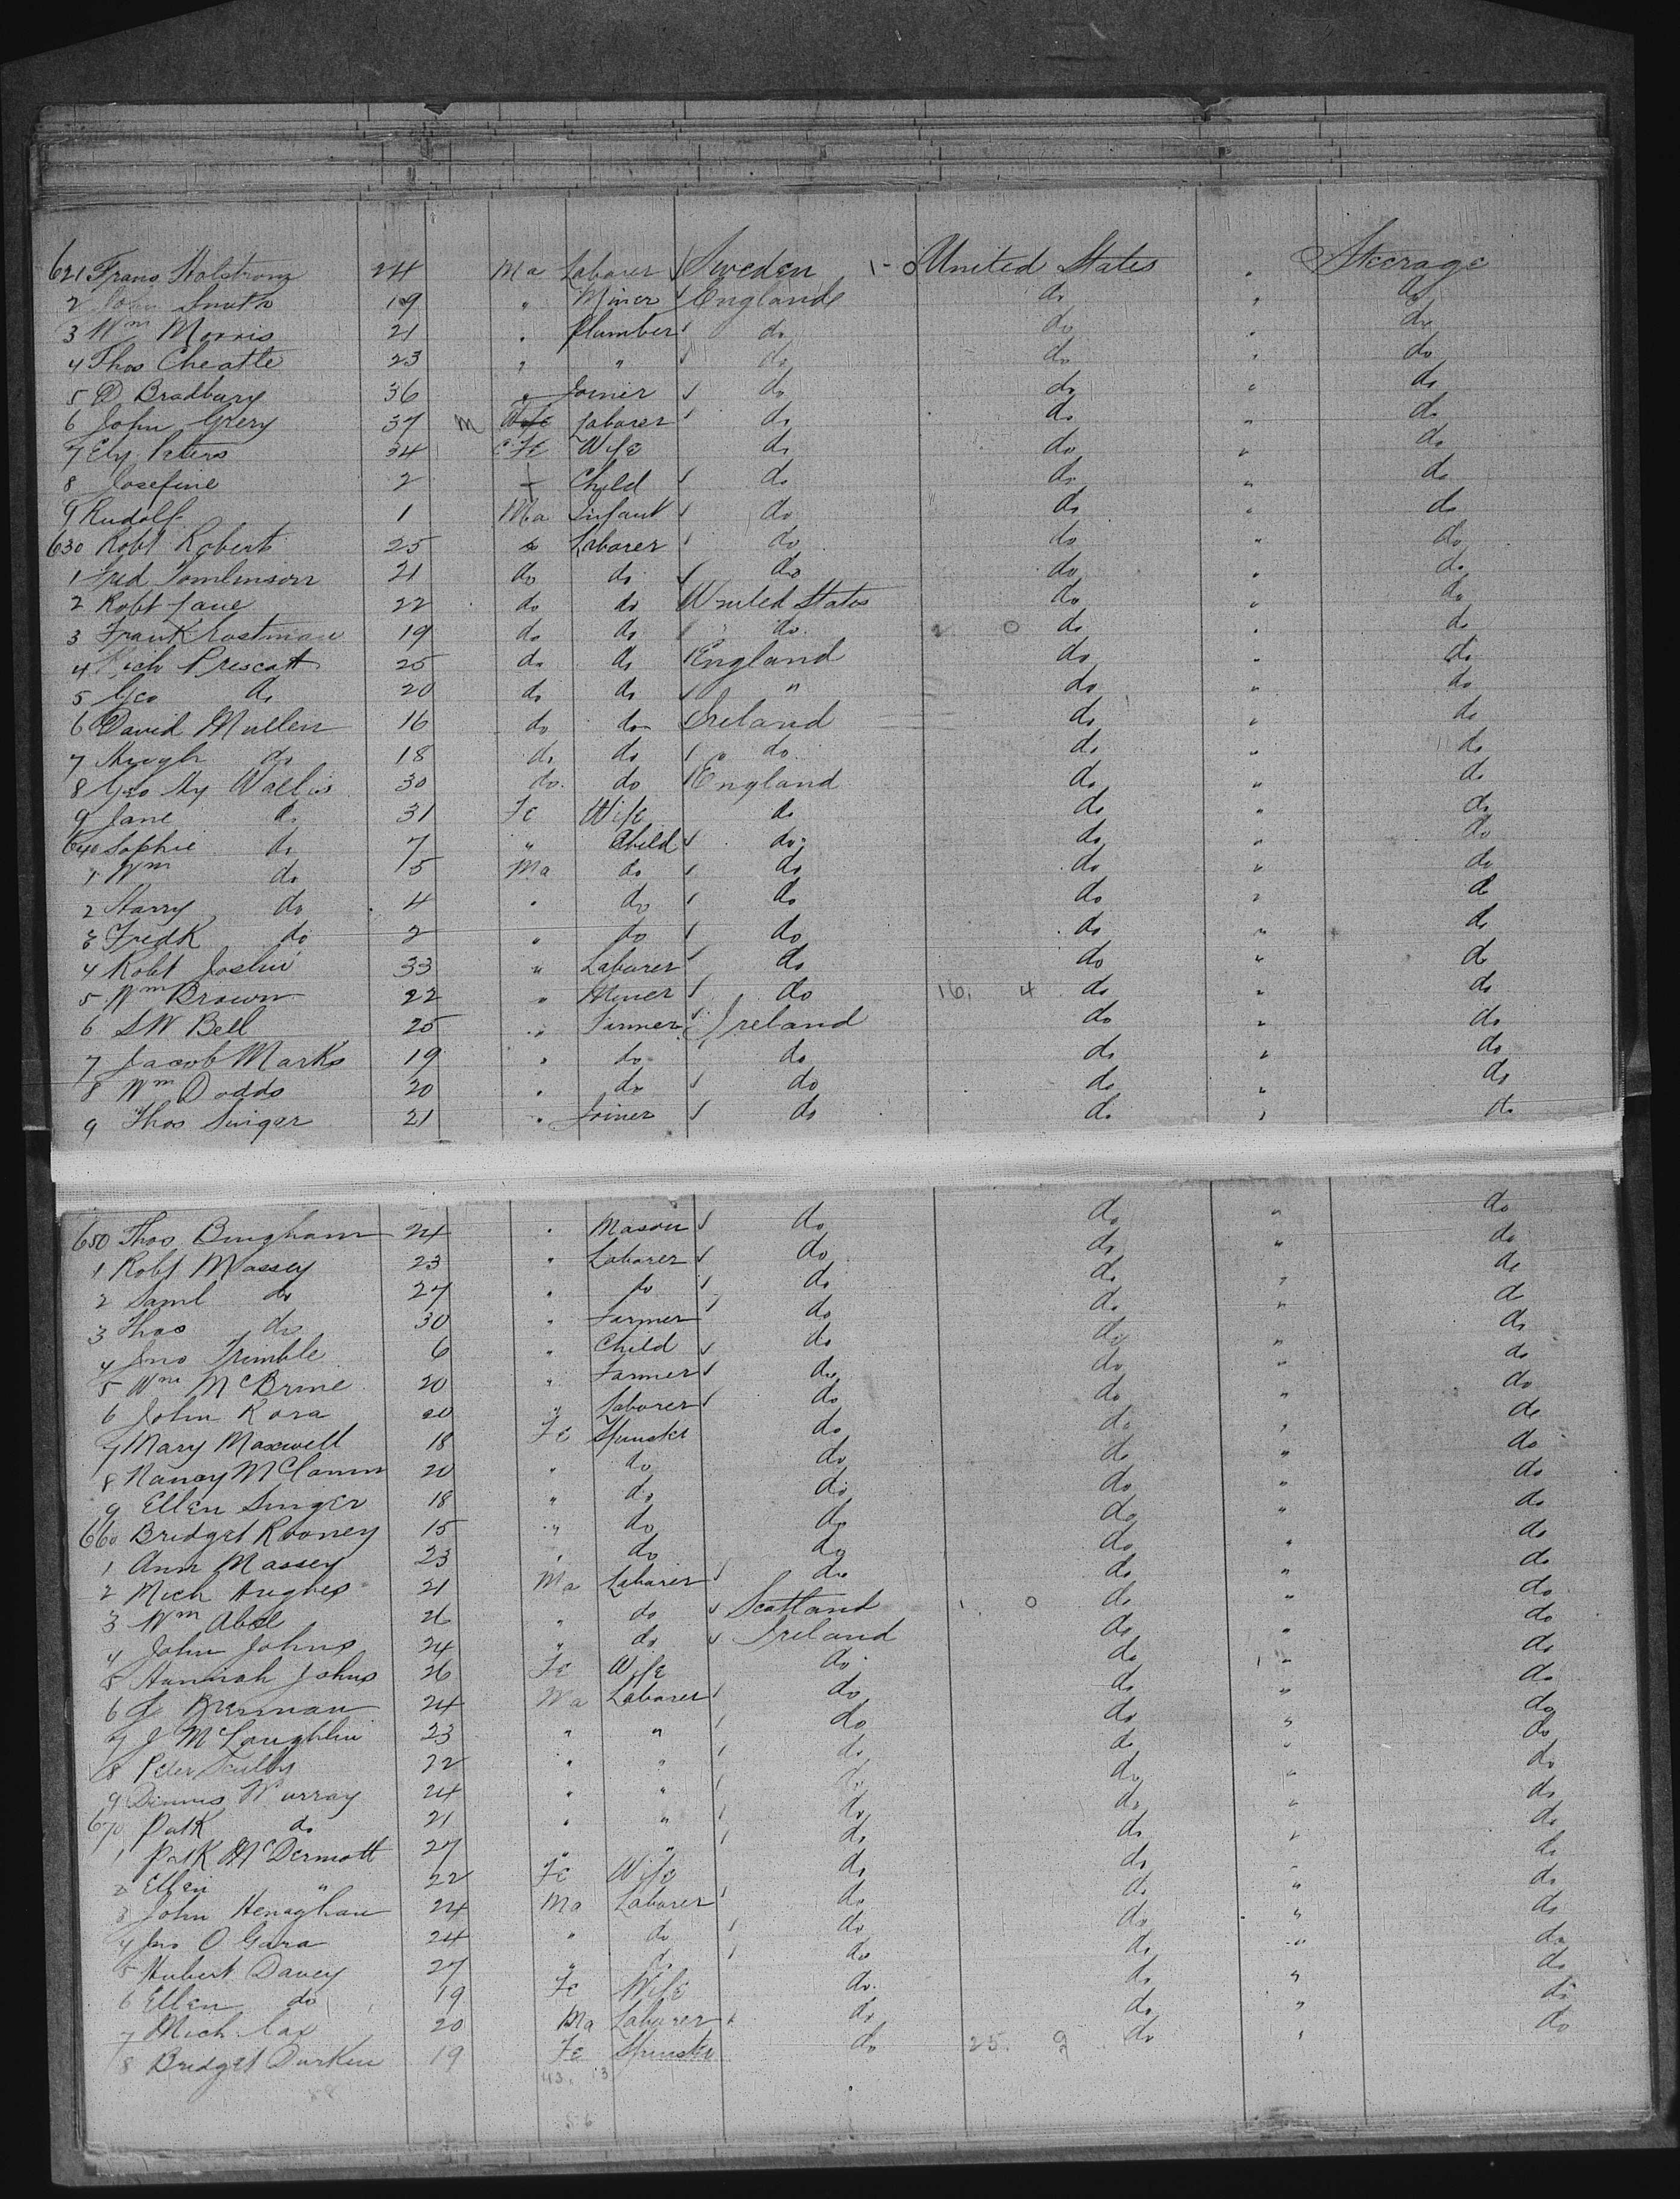 621 Frans Holstrong 24 Ma Laborer Sweden 1-0 United States " Steerage
2 John Smith 19 " Miner England do " do
3 Wm Morris 21 " Plumber do do " do
4 Thos Cheatle 23 " " do do " do
5 D Bradbury 36 " Joiner do do " do
6 John Grery 37 M Laborer do do " do
7 Ely Peters 34 Fe Wife do do " do
8 Josefine 2 Child do do " do
9 Rudolf 1 Ma Infant do do " do
630 Robt Roberts 25 do Laborer do do " do
1 Fred Tomlinson 21 do do do do " do
2 Robt Lane 22 do do United States do " do
3 Frank Eastman 19 do do do 2 0 do " do
4 Rich Prescott 25 do do England do " do
5 Geo do 20 do do " do " do
6 David Mullen 16 do do Ireland do " do
7 Hugh do 18 do do " do do " do
8 Geo Hy Wallis 30 do do England do " do
9 Jane do 31 Fe Wife do do " do
640 Sophie do 7 " Child do do " do
1 Wm do 5 Ma do do do " do
2 Harry do 4 " do do do " do
3 Fredk do 2 " do do do " do
4 Robt Joslin 33 " Laborer do do " do
5 Wm Brown 22 " Miner do 16. 4 do " do
6 S W Bell 25 " Farmer Ireland do " do
7 Jacob Marks 19 " do do do " do
8 Wm Dodds 20 " do do do " do
9 Thos Singer 21 " Joiner do do " do
650 Thos Bingham 24 " Mason do do " do
1 Robt Massey 23 " Laborer do do " do
2 Saml do 27 " do do do " do
3 Thos do 30 " Farmer do do " do
4 Jno Trimble 6 " Child do do " do
5 Wm McBrine 20 " Farmer do do " do
6 John Rora 20 " Laborer do do " do
7 Mary Maxwell 18 Fe Spinster do do " do
8 Nancy McCamm 20 " do do do " do
9 Ellen Singer 18 " do do do " do
660 Bridget Rooney 15 " do do do " do
1 Ann Massey 23 " do do do " do
2 Mich Hughes 21 Ma Laborer do do " do
3 Wm Abel 26 " do Scotland 1. 0 do " do
4 John Johns 24 " do Ireland do " do
5 Hannah Johns 26 Fe Wife do do " do
6 J Brennan 24 Ma Laborer do do " do
7 J McLoughlin 23 " " do do " do
8 Peter Scully 22 " " do do " do
9 Dinnis Murray 24 " " do do " do
670 Patk do 21 " " do do " do
1 Patk McDermott 27 " " do do " do
2 Ellen " 22 Fe Wife do do " do
3 John Henaghan 24 Ma Laborer do do " do
4 Jno O Gara 24 " do do do " do
5 Hubert Davey 27 " do do do " do
6 Ellen do 19 Fe Wife do do " do
7 Mich Cox 20 Ma Laborer do do " do
8 Bridget Durkin 19 Fe Spinster do 25. 9 do " do
43. 13
56